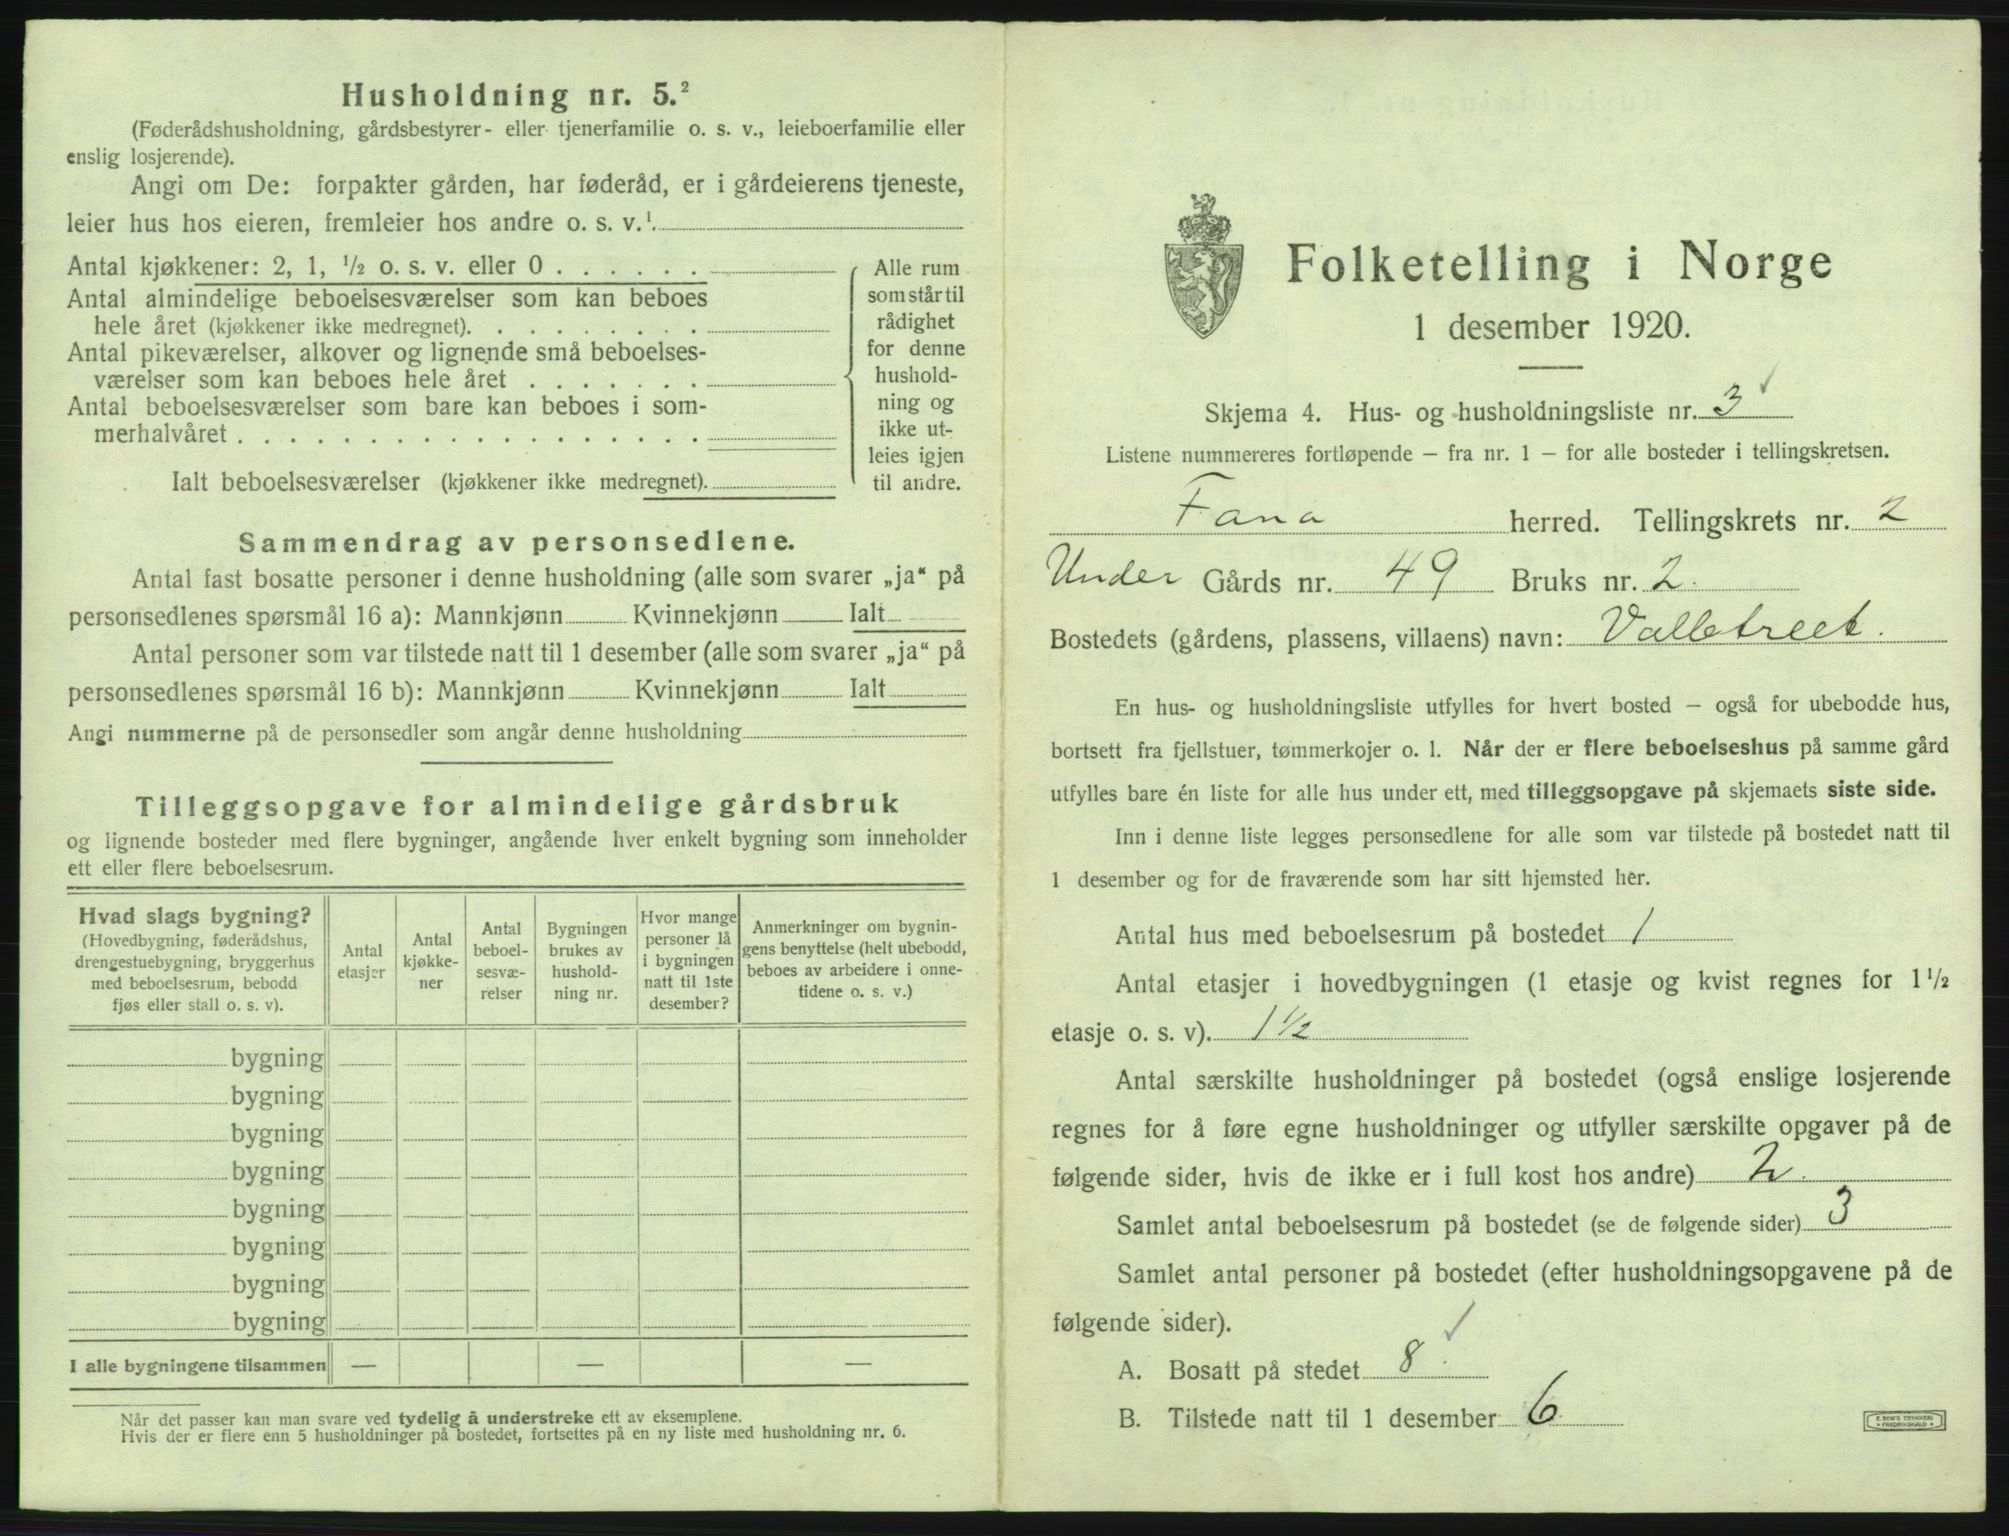 Husholdning nr. 5.²
(Føderådshusholdning, gårdsbestyrer- eller tjenerfamilie o. s. v., leieboerfamilie eller
enslig losjerende).
Angi om De: forpakter gården, har føderåd, er i gårdeierens tjeneste,
leier hus hos eieren, fremleier hos andre o. s. v.¹
Antal kjøkkener: 2, 1, ½ o. s. v. eller 0 . . . . . .
Antal almindelige beboelsesværelser som kan beboes
hele året (kjøkkener ikke medregnet). . . . . . . . .
Antal pikeværelser, alkover og lignende små beboelses-
værelser som kan beboes hele året . . . . . . .
Antal beboelsesværelser som bare kan beboes i som-
merhalvåret . . . . . . . . . . . . . . . . .
Ialt beboelsesværelser (kjøkkener ikke medregnet).
Alle rum
som står til
rådighet
for denne
hushold-
ning og
ikke ut-
leies igjen
til andre.
Sammendrag av personsedlene.
Antal fast bosatte personer i denne husholdning (alle som svarer „ja“ på
personsedlenes spørsmål 16 a): Mannkjønn Kvinnekjønn Ialt
Antal personer som var tilstede natt til 1 desember (alle som svarer „ja“ på
personsedlenes spørsmål 16 b): Mannkjønn Kvinnekjønn Ialt
Angi nummerne på de personsedler som angår denne husholdning
Tilleggsopgave for almindelige gårdsbruk
og lignende bosteder med flere bygninger, angående hver enkelt bygning som inneholder
ett eller flere beboelsesrum.
Hvad slags bygning?
(Hovedbygning, føderådshus,
drengestuebygning, bryggerhus
med beboelsesrum, bebodd
fjøs eller stall o. s. v).
Antal
etasjer
Antal
kjøkke-
ner
Antal
beboel-
sesvæ-
relser
Bygningen
brukes av
hushold-
ning nr.
Hvor mange
personer lå
i bygningen
natt til 1ste
desember?
Anmerkninger om bygnin-
gens benyttelse (helt ubebodd,
beboes av arbeidere i onne-
tidene o. s. v.)
bygning
bygning
bygning
bygning
bygning
bygning
bygning
bygning
I alle bygningene tilsammen — — —
Når det passer kan man svare ved tydelig å understreke ett av eksemplene.
Hvis der er flere enn 5 husholdninger på bostedet, fortsettes på en ny liste med husholdning nr. 6.
Folketelling i Norge
1 desember 1920.
Skjema 4. Hus- og husholdningsliste nr. 3 ✓
Listene nummereres fortløpende – fra nr. 1 – for alle bosteder i tellingskretsen.
Fana herred. Tellingskrets nr. 2
Under Gårds nr. 49 Bruks nr. 2.
Bostedets (gårdens, plassens, villaens) navn: Valletreet.
En hus- og husholdningsliste utfylles for hvert bosted – også for ubebodde hus,
bortsett fra fjellstuer, tømmerkojer o. l. Når der er flere beboelseshus på samme gård
utfylles bare én liste for alle hus under ett, med tilleggsopgave på skjemaets siste side.
Inn i denne liste legges personsedlene for alle som var tilstede på bostedet natt til
1 desember og for de fraværende som har sitt hjemsted her.
Antal hus med beboelsesrum på bostedet 1
Antal etasjer i hovedbygningen (1 etasje og kvist regnes for 1½
etasje o. s. v). 1½
Antal særskilte husholdninger på bostedet (også enslige losjerende
regnes for å føre egne husholdninger og utfyller særskilte opgaver på de
følgende sider, hvis de ikke er i full kost hos andre) 2.
Samlet antal beboelsesrum på bostedet (se de følgende sider) 3
Samlet antal personer på bostedet (efter husholdningsopgavene på de
følgende sider). ✓
A. Bosatt på stedet 8.
B. Tilstede natt til 1 desember 6